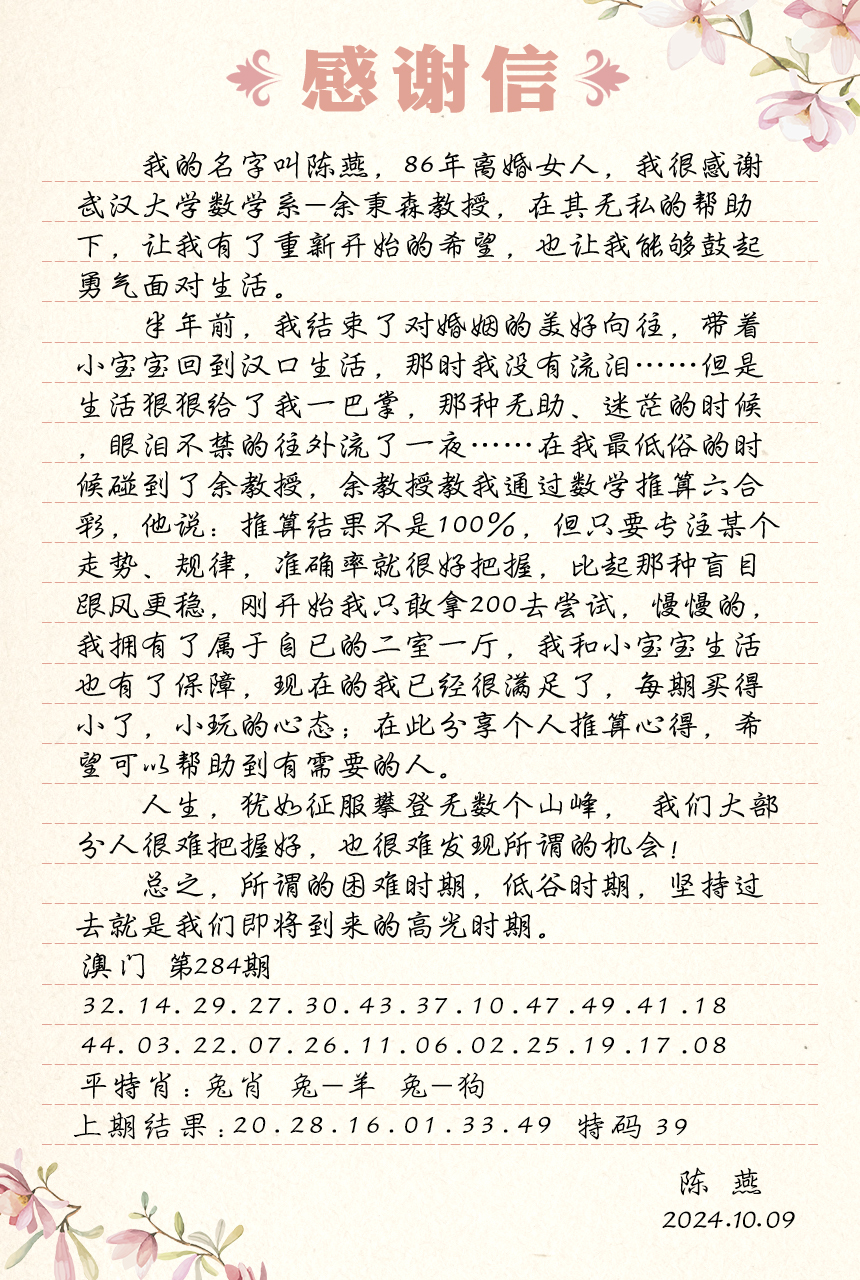 感谢信
我的名字叫陈燕，86年离婚女人，我很感谢
武汉大学数学系—余秉森教授，在其无私的帮助
下，让我有了重新开始的希望，也让我能够鼓起
勇气面对生活。
半年前，我结束了对婚姻的美好向往，带着
小宝宝回到汉口生活，那时我没有流泪……但是
生活狠狠给了我一巴掌，那种无助、迷茫的时候
，眼泪不禁的往外流了一夜……在我最低俗的时
候碰到了余教授，余教授教我通过数学推算六合
彩，他说：推算结果不是100%，但只要专注某个
走势、规律，准确率就很好把握，比起那种盲目
跟风更稳，刚开始我只敢拿200去尝试，慢慢的，
我拥有了属于自已的二室一厅，我和小宝宝生活
也有了保障，现在的我已经很满足了，每期买得
小了，小玩的心态；在此分享个人推算心得，希
望可以帮助到有需要的人。
人生，犹如征服攀登无数个山峰， 我们大部
分人很难把握好，也很难发现所谓的机会！
总之，所谓的困难时期，低谷时期，坚持过
去就是我们即将到来的高光时期。
澳门 第284期
32.14.29.27.30.43.37.10.47.49.41.18
44.03.22.07.26.11.06.02.25.19.17.08
平特肖：兔肖 兔—羊 兔—狗
上期结果：20.28.16.01.33.49 特码 39
陈 燕
2024.10.09